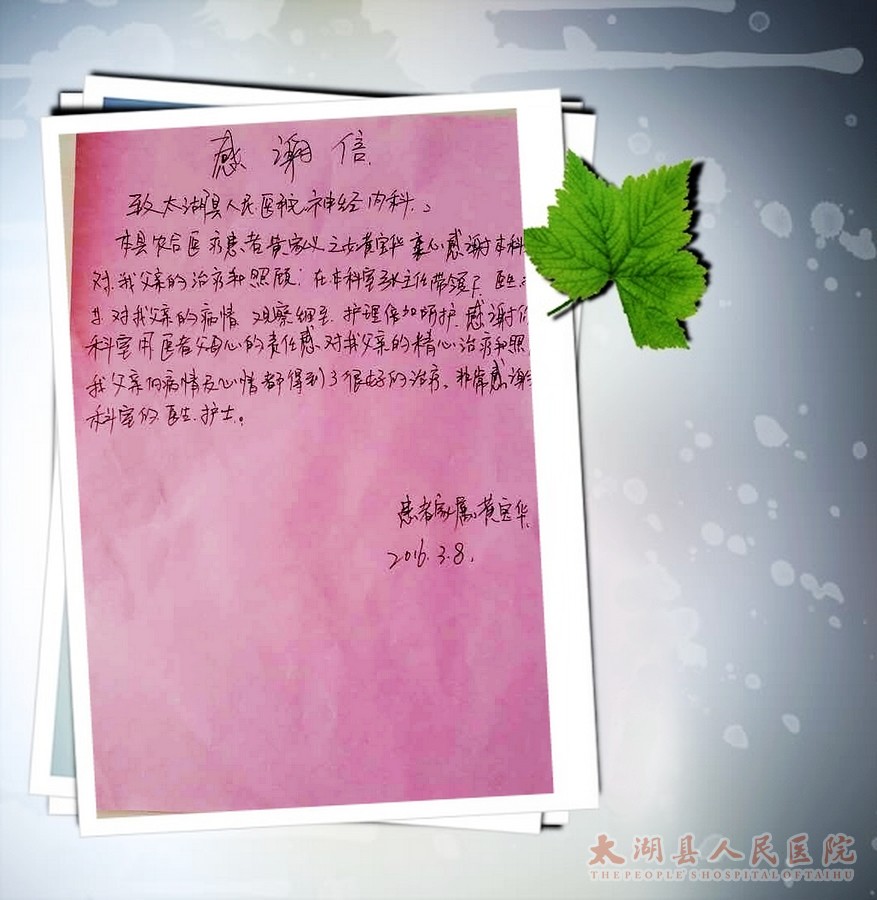 感谢信
致太湖县人民医院神经内科:
本县农合医疗患者黄家义之女黄宝华衷心感谢本科
对我父亲的治疗和照顾;在本科室张主任带领下,医生,
对我父亲的病情,观察细至,护理倍加呵护,感谢
科室用医者父母心的责任感,对我父亲的精心治疗和照
我父亲的病情及心情都得到了很好的治疗。非常感谢
科室的医生.护士。
患者家属:黄宝华.
2016.3.8.
太湖县人民医院
THE PEOPLE'S HOSPITAL OF TAIHU